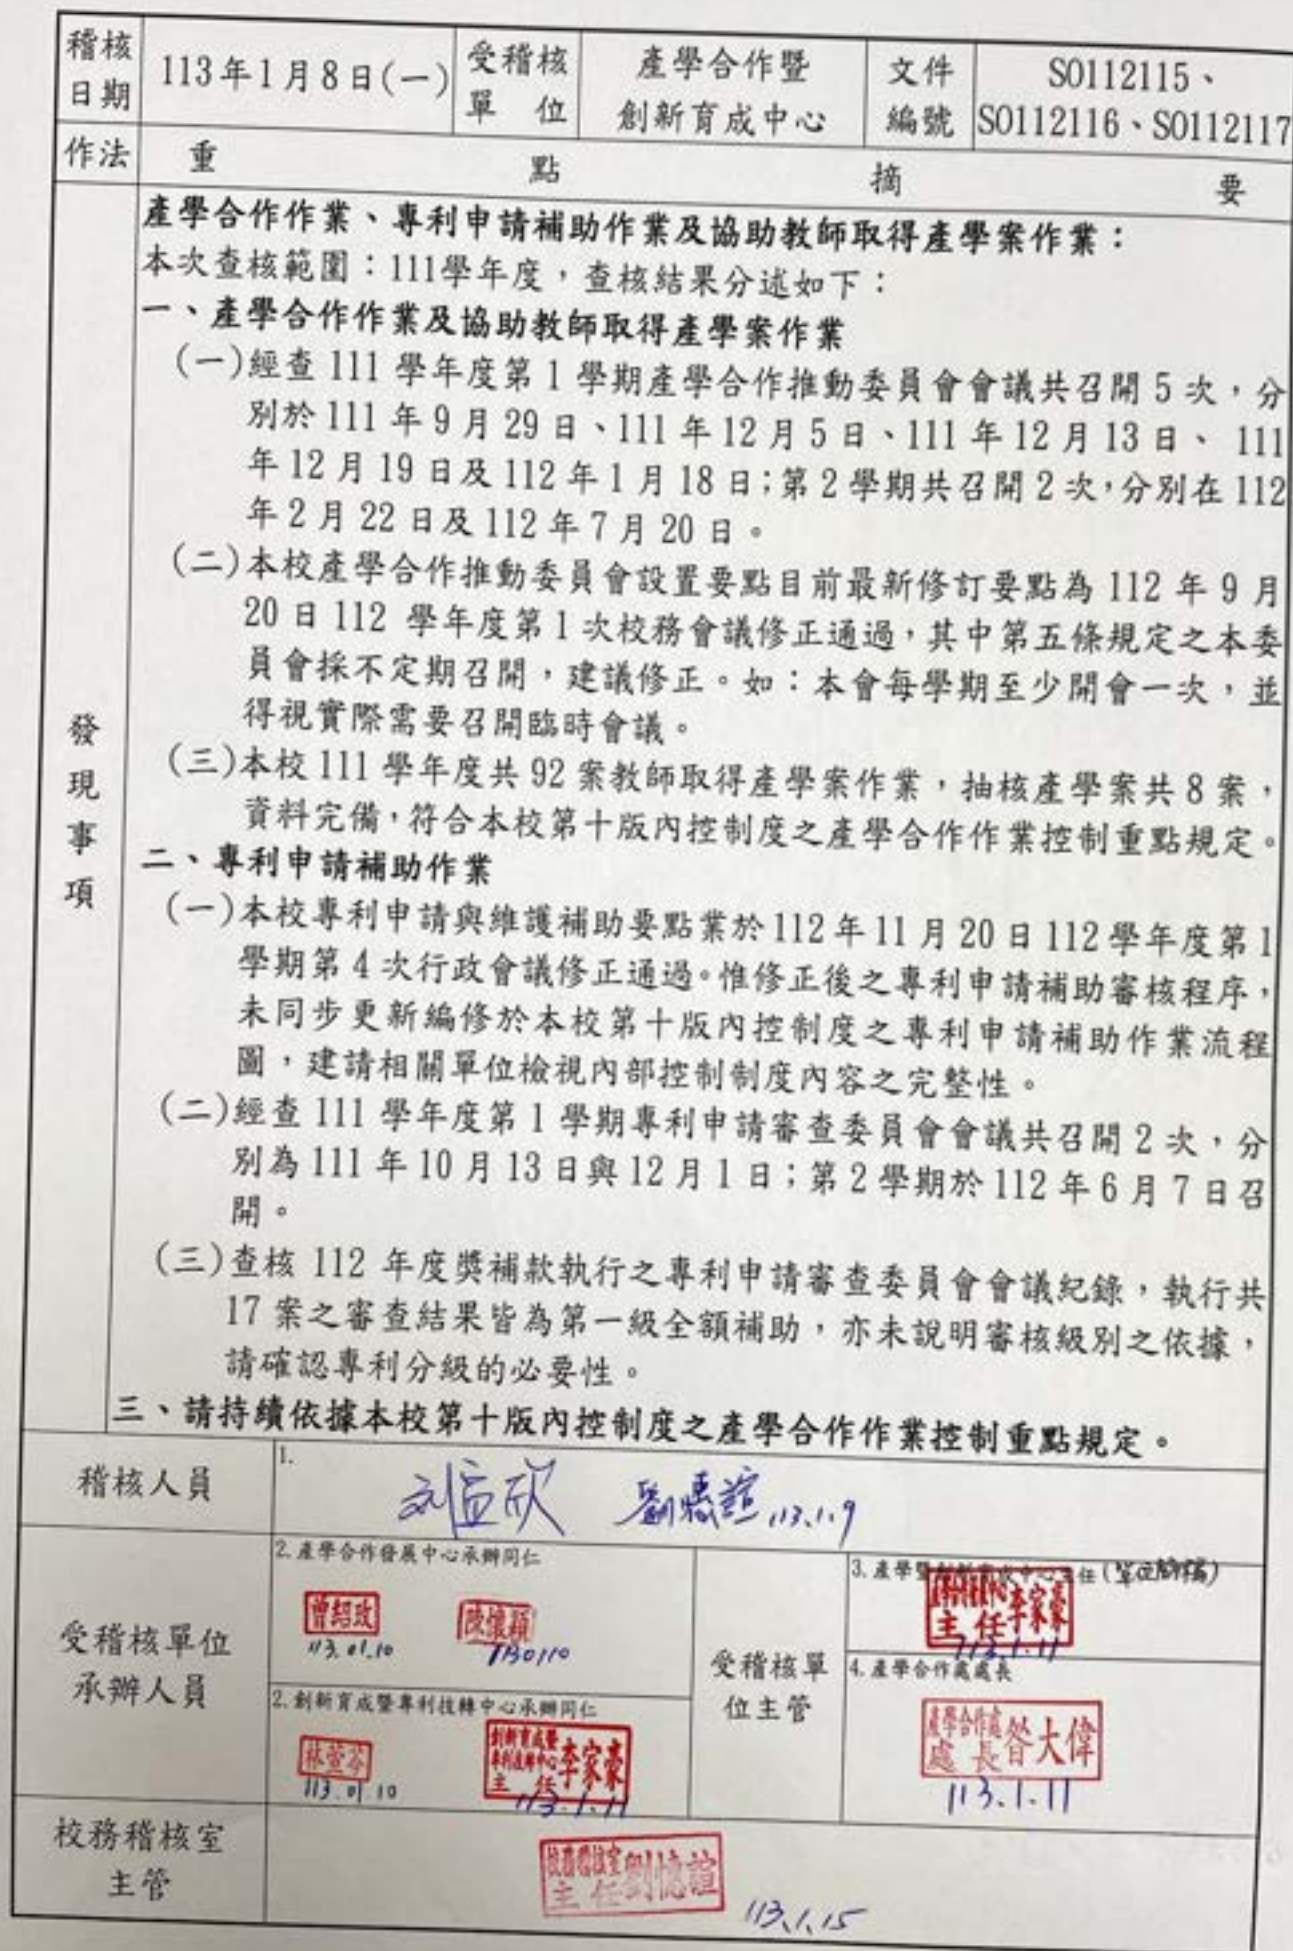 稽核日期 113年1月8日(一) 受稽核單位 產學合作暨創新育成中心 文件編號 SO112115、SO112116、SO112117
作法 重點摘要
發現事項
產學合作作業、專利申請補助作業及協助教師取得產學案作業：
本次查核範圍：111學年度，查核結果分述如下：
一、產學合作作業及協助教師取得產學案作業
(一)經查 111 學年度第 1 學期產學合作推動委員會會議共召開 5 次，分
別於 111 年 9 月 29 日、111 年 12 月 5 日、111 年 12 月 13 日、 111
年 12 月 19 日及 112 年 1 月 18 日；第 2 學期共召開 2 次，分別在 112
年 2 月 22 日及 112 年 7 月 20 日。
(二)本校產學合作推動委員會設置要點目前最新修訂要點為 112 年 9 月
20 日 112 學年度第 1 次校務會議修正通過，其中第五條規定之本委
員會採不定期召開，建議修正。如：本會每學期至少開會一次，並
得視實際需要召開臨時會議。
(三)本校 111 學年度共 92 案教師取得產學案作業，抽核產學案共 8 案，
資料完備，符合本校第十版內控制度之產學合作作業控制重點規定。
二、專利申請補助作業
(一)本校專利申請與維護補助要點業於 112 年 11 月 20 日 112 學年度第 1
學期第 4 次行政會議修正通過。惟修正後之專利申請補助審核程序，
未同步更新編修於本校第十版內控制度之專利申請補助作業流程
圖，建請相關單位檢視內部控制制度內容之完整性。
(二)經查 111 學年度第 1 學期專利申請審查委員會會議共召開 2 次，分
別為 111 年 10 月 13 日與 12 月 1 日；第 2 學期於 112 年 6 月 7 日召
開。
(三)查核 112 年度獎補款執行之專利申請審查委員會會議紀錄，執行共
17 案之審查結果皆為第一級全額補助，亦未說明審核級別之依據，
請確認專利分級的必要性。
三、請持續依據本校第十版內控制度之產學合作作業控制重點規定。
稽核人員
1.
113.1.9
受稽核單位
承辦人員
2.產學合作發展中心承辦同仁
曾紹玫 陳懷穎
113.01.10 1130110
2.創新育成暨專利技轉中心承辦同仁
林萱苓 創新育成暨專利技轉中心主任李家豪
113.01.10 113.1.11
受稽核單
位主管
主任李家豪
113.1.11
4.產學合作處處長
產學合作處處長昝大偉
113.1.11
校務稽核室
主管
校務稽核室主任劉憶諠
113.1.15